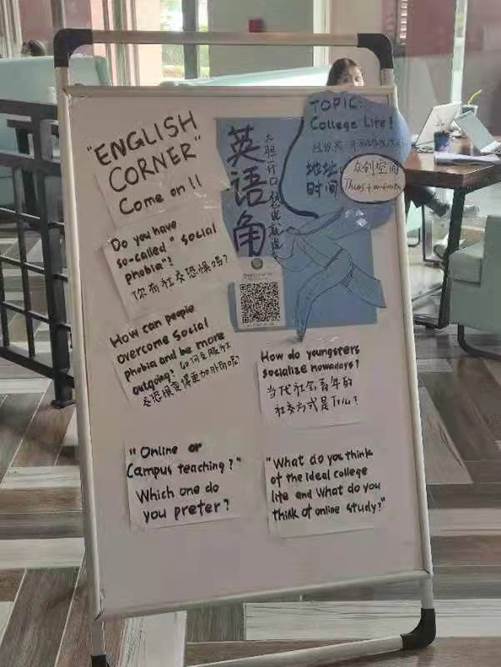 "ENGLISH
CORNER"
Come on !!
英语角
大胆开口
TOPIC:
College Life!
地址:
众创空间
时间:
Do you have
so-called "social
phobia"?
你有社交恐惧吗?
How can people
overcome social
phobia and be more
outgoing? 如何克服社
交恐惧变得更加外向呢?
How do youngsters
socialize nowadays?
当代社会青年的
社交方式是什么?
"Online or
Campus teaching?"
Which one do
you prefer?
"What do you think
of the ideal college
life and What do you
think of online study?"